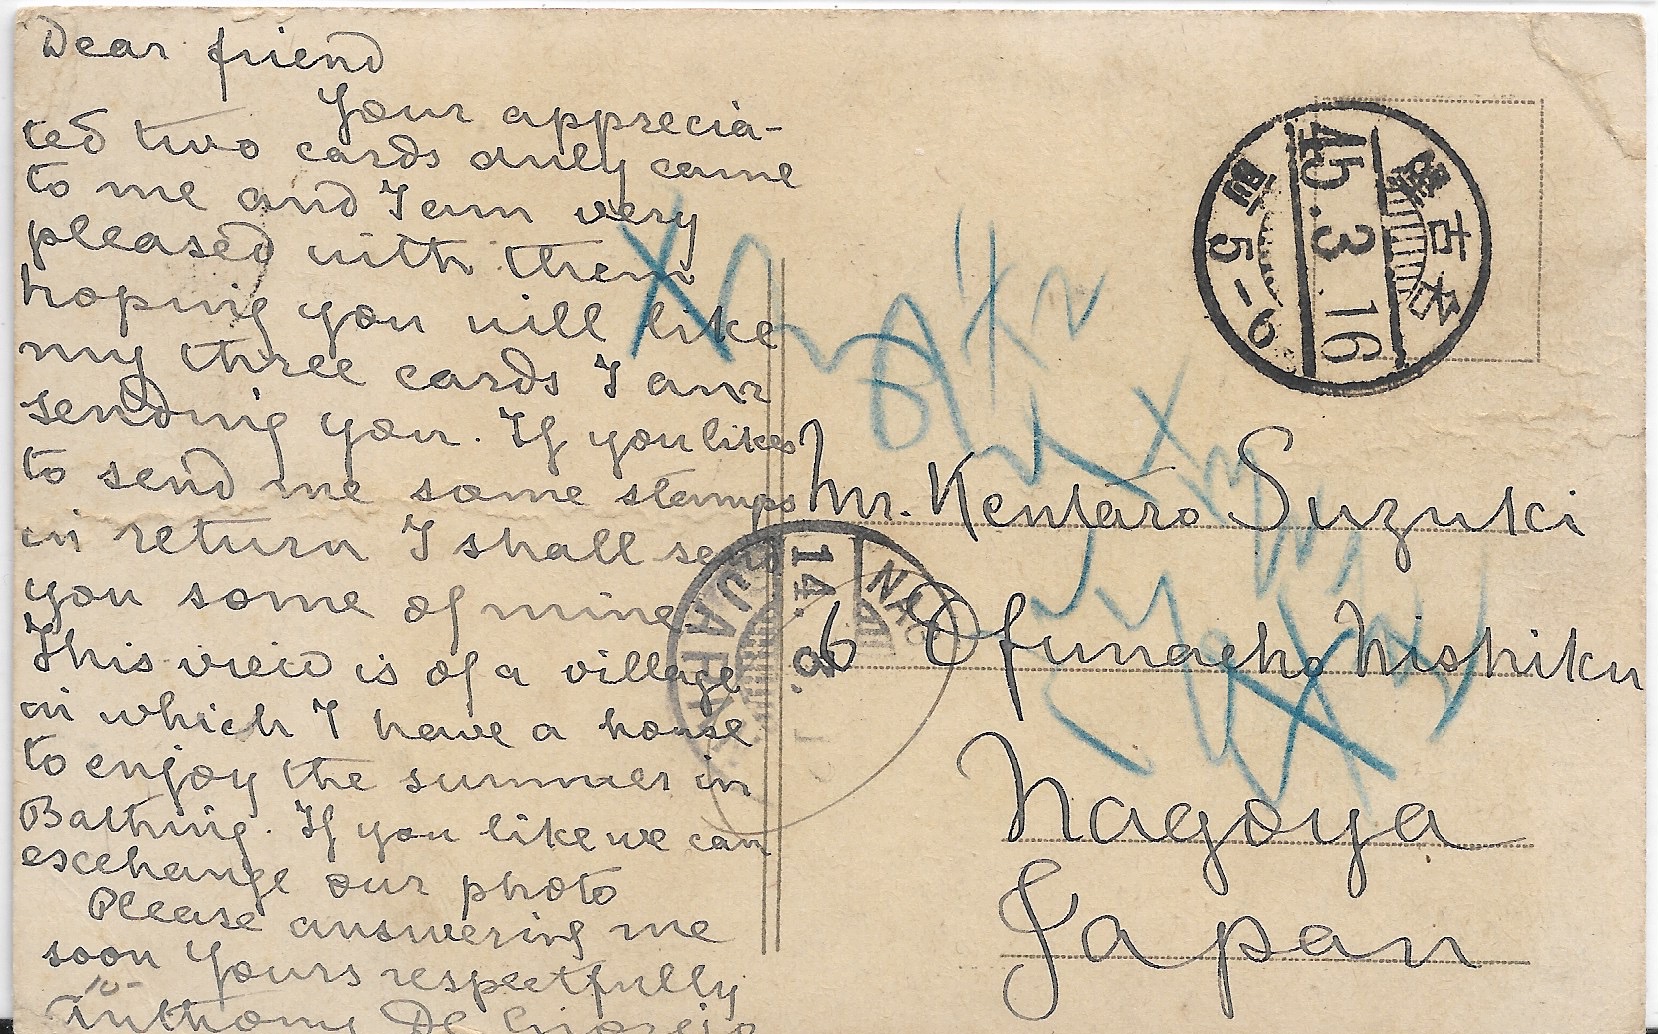 Dear friend
Your apprecia-
ted two cards duly came
to me and I am very
pleased with them
hoping you will like
my three cards I am
sending you. If you likes
to send me some stamps
in return I shall send
you some of mine
This view is of a village
in which I have a house
to enjoy the summer in
Bathing. If you like we can
excehange our photo
Please answering me
soon Yours respectfully
Anthony De
名古屋
45.3.16
5-6
Mr. Kentaro Suzuki
6 Ofunacho Nishiku
Nagoya
Japan
NAG
14.
JAPAN